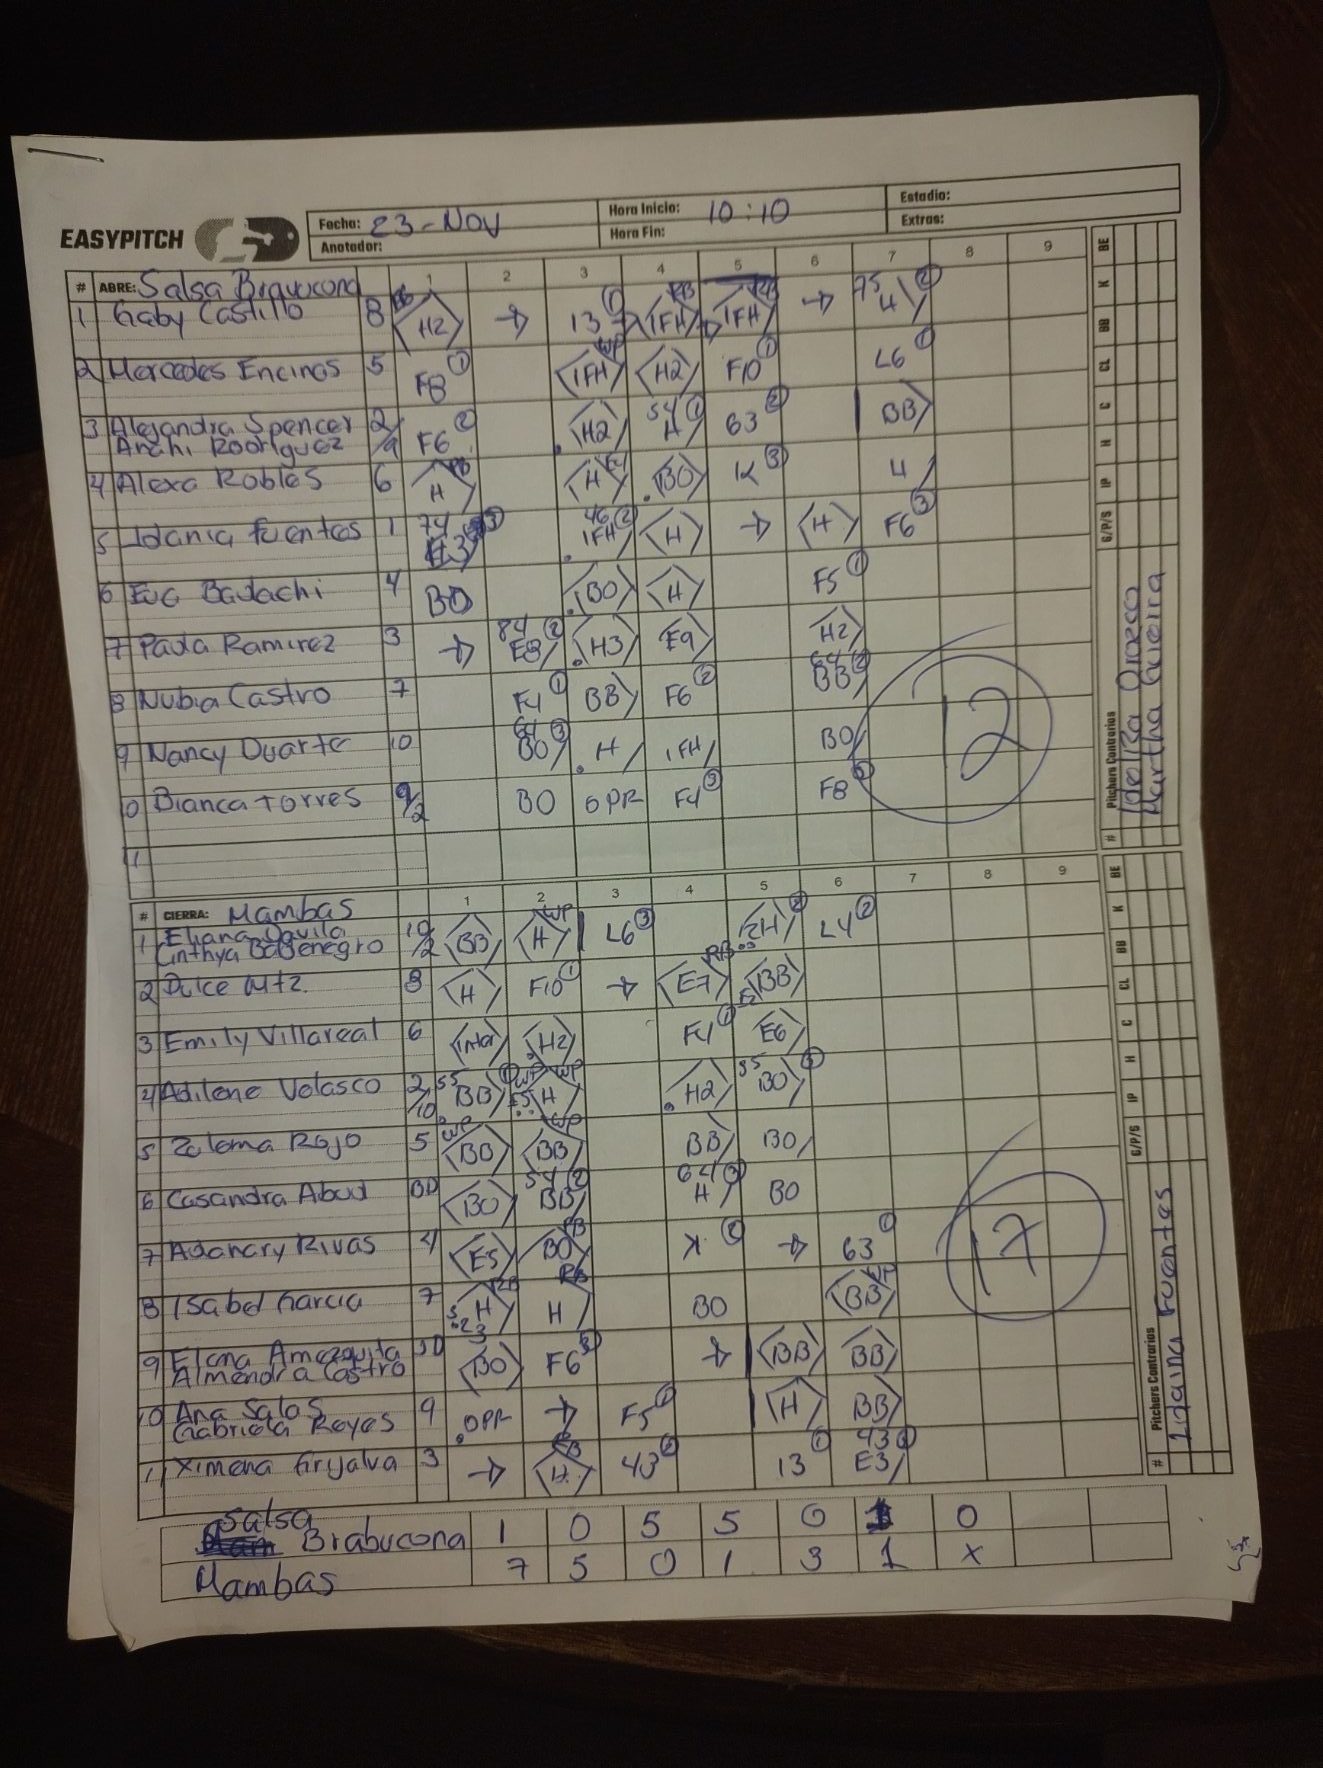 EASYPITCH
Fecha: 23-Nov
Hora Inicio: 10:10
Estadio:
Anotador:
Hora Fin:
Extras:
# ABRE: Salsa Bravucona 1 2 3 4 5 6 7 8 9
1 Gaby Castillo 8 H2 → 13 1 IFH IFH → 4 2
2 Mercedes Encinas 5 F8 1 IFH WP H2 F10 1 L6 1
3 Alejandra Spencer 2/ F6 2 H2 54 1 H 63 2 BB
Anahi Rodriguez /9
4 Alexa Robles 6 H H BO K 3 4
5 Idania Fuentes 1 74 3 46 2 IFH H → H F6 3
6 Eva Badachi 4 BO BO H F5 1
7 Paola Ramirez 3 → 84 2 E8 H3 E9 H2
8 Nubia Castro 7 F4 1 BB F6 2 64 2 BB
9 Nancy Duarte 10 64 3 BO H IFH BO
10 Bianca Torres 9/2 BO OPR F4 3 F8 3
11
12
G/P/S IP H C CL BB K BE
# Pitchers Contrarios
Martha Guerra
# CIERRA: Mambas 1 2 3 4 5 6 7 8 9
1 Eliana Davila 10 BB H WP L6 3 2H 2 L4 2
Cinthya Babenegro /2
2 Dulce Mtz. 8 H F10 1 → E7 BB
3 Emily Villareal 6 Inter H2 F4 1 E6
4 Adilene Velasco 2/10 55 1 BB H WP H2 35 3 BO
5 Zulema Rojo 5 WP BB BB WP BB BO
6 Casandra Abud BD BO 54 2 BB 64 3 H BO
7 Adanary Rivas 4 E5 BO K 2 → 63 1
8 Isabel Garcia 7 H H BO BB
9 Elena Amezquita BO F6 3 → BB BB
Almendra Castro
10 Ana Salas 9 OPR → F5 1 H BB
Gabriela Reyes
11 Ximena Grijalva 3 → H 43 2 13 1 43 E3
17
G/P/S IP H C CL BB K BE
# Pitchers Contrarios
1 Idaina Fuentes
Salsa
Brabucona 1 0 5 5 0 1 0
Mambas 7 5 0 1 3 1 X